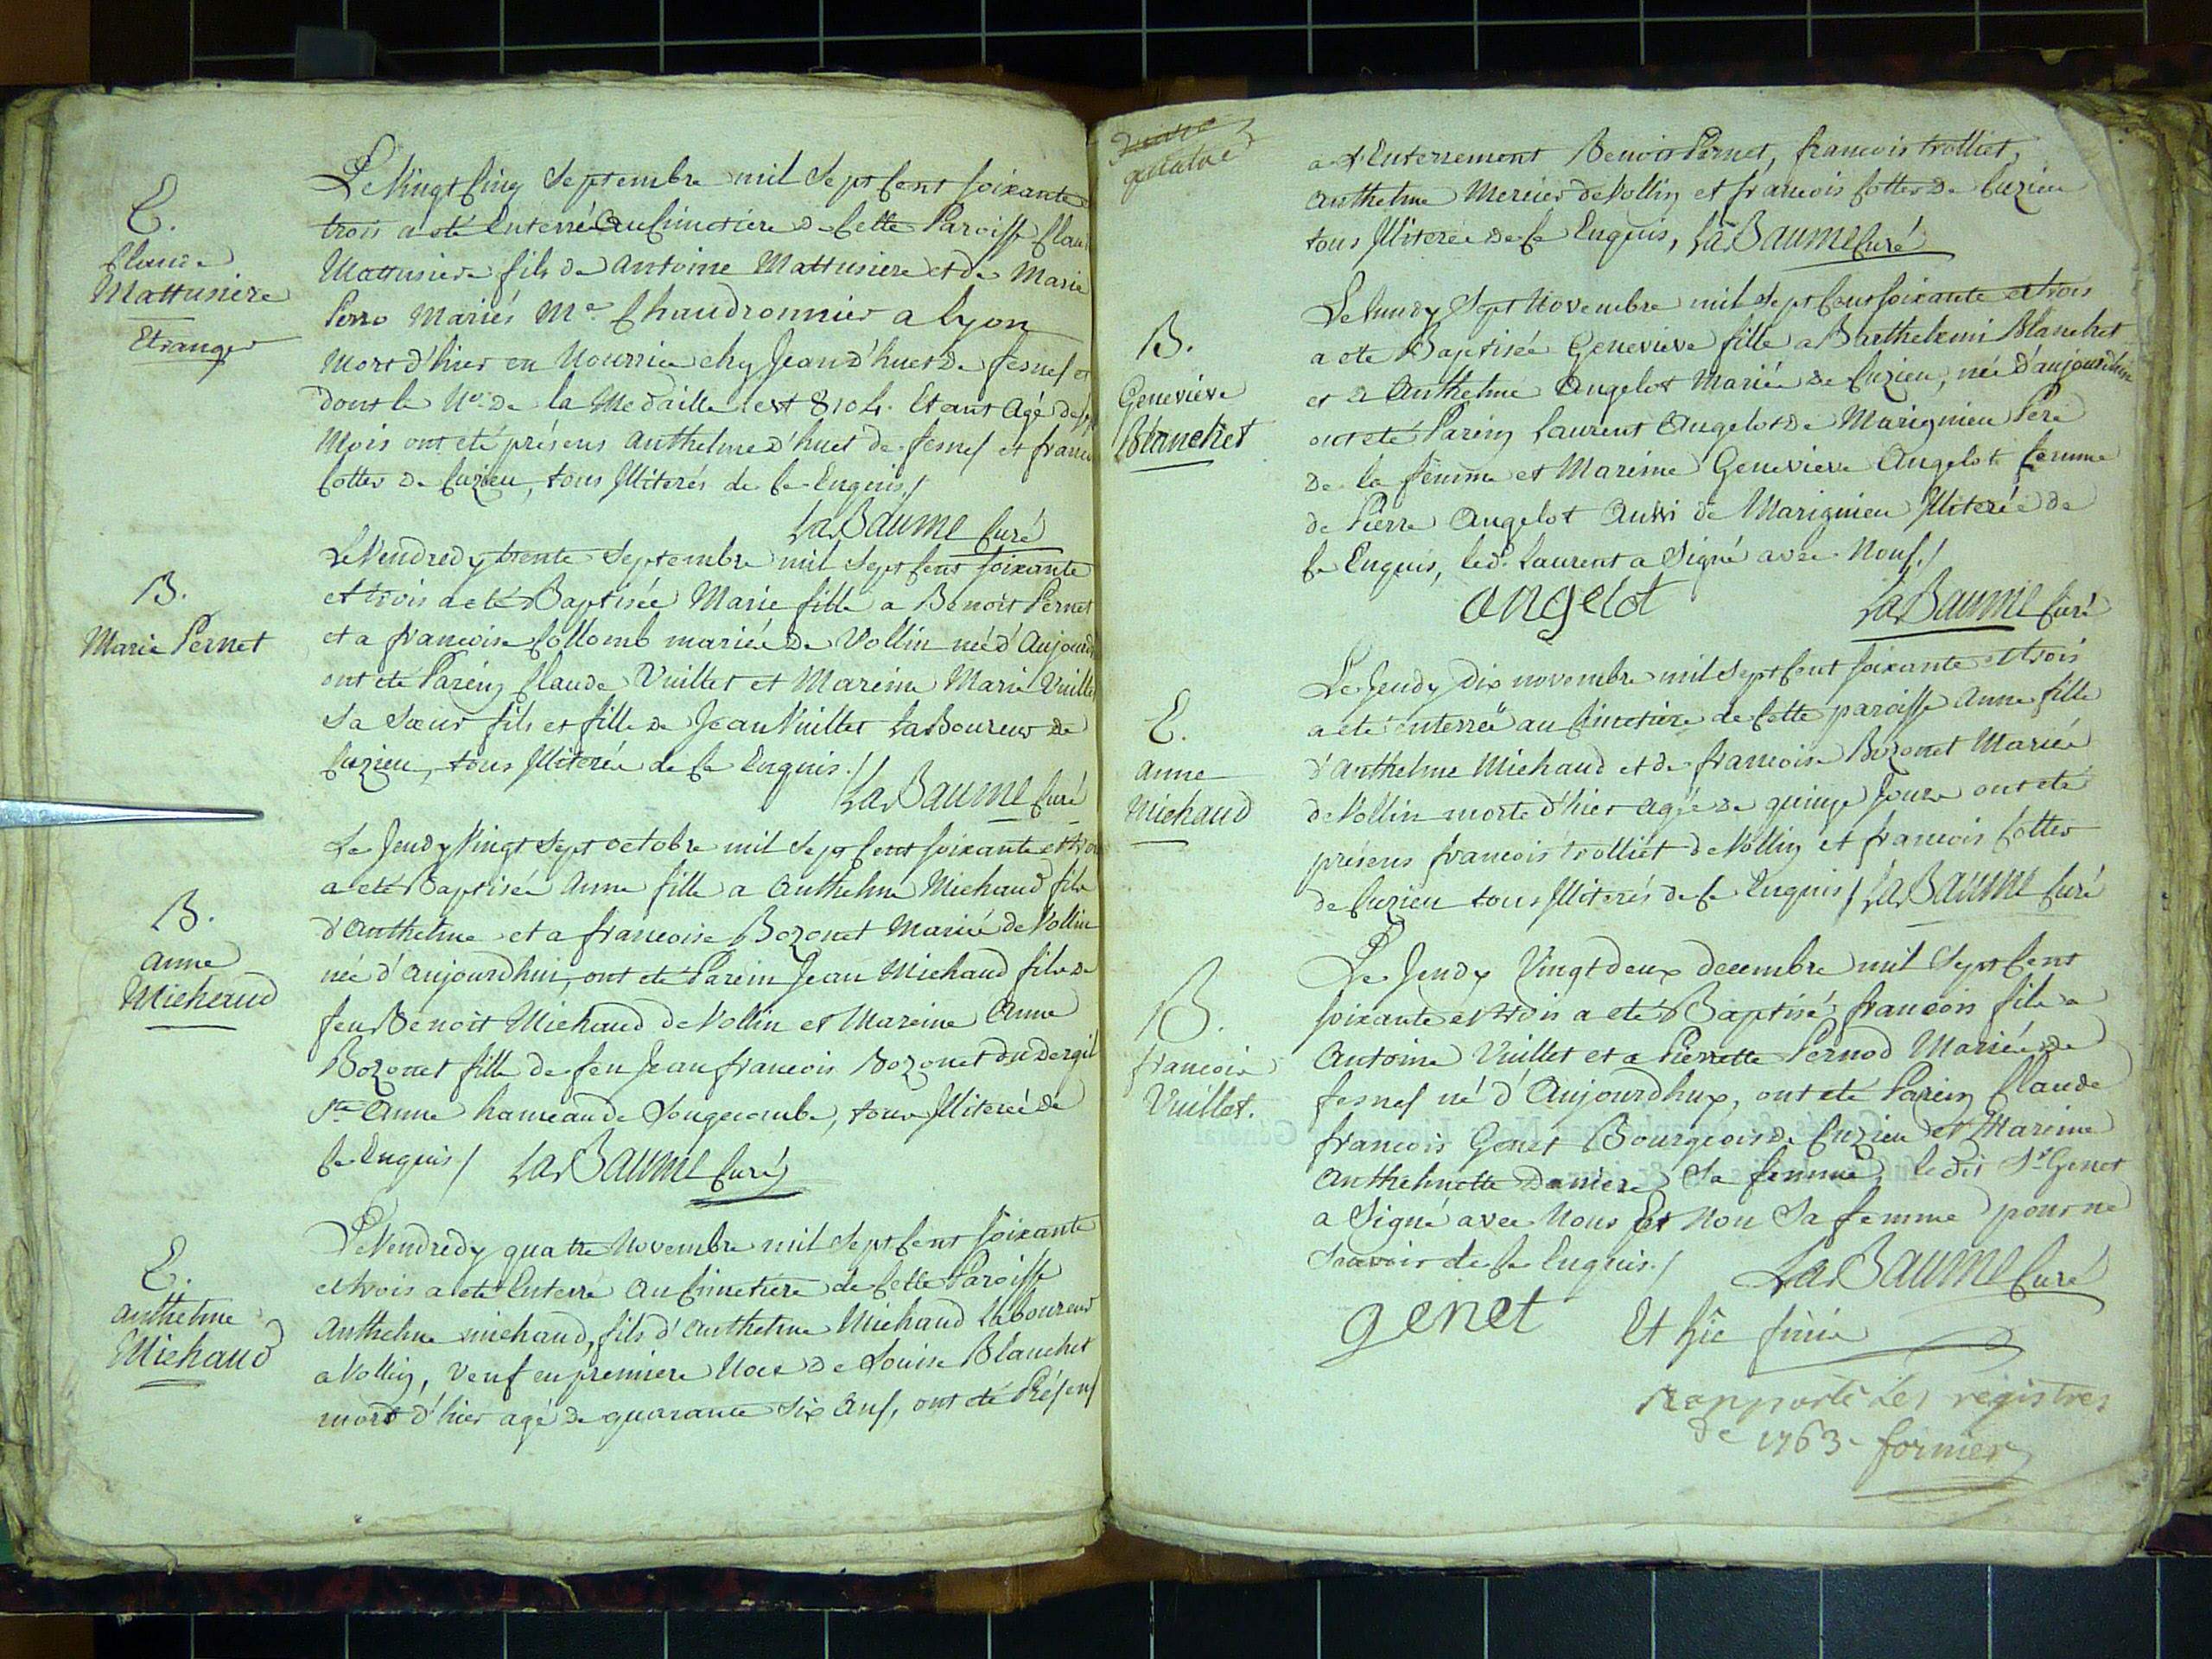 E.
Claude
Mattusiere
Etranger
Le Vingt Cinq Septembre mil Sept Cent Soixante
trois a eté Enterré Au Cimetiere de Cette Paroisse Clau
Mattusiere fils de Antoine Mattusiere et de Marie
Perro Mariés Me Chaudronnier a Lyon
Mort d'hier en Nourrice chez Jean d'huet de fesnes et
dont le No. de la Medaille est Etant Agé de
Mois ont eté présens Anthelme d'huet de fesnes et franc
Cottes de Cuzieu, tous Illiterés de Ce Enquis./
LaBaume Curé
B.
Marie Pernet
Le Vendredy trente Septembre mil Sept Cent Soixante
et trois a eté Baptisée Marie fille a Benoit Pernet
et a francoise Collomb mariée de Vollin née d'Aujourd
ont eté Parein Claude Vuillet et Mareine Marie Vuille
Sa Sœur fils et fille de Jean Vuillet Laboureur de
Cuzieu, tous Illiterée de Ce Enquis./
LaBaume Curé
B.
Anne
Michaud
Le Jeudy Vingt Sept octobre mil Sept Cent Soixante et tro
a eté Baptisée Anne fille a Anthelme Michaud fils
d'Anthelme et a francoise Bozonet Mariée de Vollin
née d'aujourdhui, ont eté Parein Jean Michaud fils de
feu Benoit Michaud de Vollin et Mareine Anne
Bozonet fille de feu Jean francois Bozonet du
Ste Anne hameau de Songecombe, tous Illiterée de
Ce Enquis/ LaBaume Curé
E.
Anthelme
Michaud
Le Vendredy quatre Novembre mil Sept Cent Soixante
et trois a eté Enterré Au Cimetiere de Cette Paroisse
Anthelme michaud, fils d'Anthelme Michaud Laboureur
a Vollin, Veuf en premiere Noce de Louise Blanchet
mort d'hier agé de quarante Six Ans, ont eté Présens
quatre
a l'Enterrement Benoit Pernet, francois trolliet,
Anthelme Mercier de Vollin et francois Cottes de Cuzieu
tous Illiterée de Ce Enquis, LaBaume Curé
B.
Genevieve
Blanchet
Le Lundy Sept Novembre mil Sept Cent Soixante et trois
a eté Baptisée Genevieve fille a Barthelemi Blanchet
et a Anthelme Angelot Mariée de Cuzieu, née d'aujourdhui
ont eté Parein Laurent Angelot de Marignieu Pere
de la femme et Mareine Genevieve Angelot femme
de Pierre Angelot Aussi de Marignieu Illiterée de
Ce Enquis, led. Laurent a Signé avec Nous./
angelot LaBaume Curé
E.
Anne
Michaud
Le Jeudy Dix novembre mil Sept Cent Soixante et trois
a eté enterrée au Cimetiere de Cette paroisse Anne fille
d'Anthelme Michaud et de francoise Bozonet Mariée
de Vollin morte d'hier agée de quinze Jours ont eté
présens francois trolliet de Vollin et francois Cottes
de Cuzieu tous Illiterés de Ce Enquis/ LaBaume Curé
B.
francois
Vuillet.
Le Jeudy Vingt deux decembre mil Sept Cent
Soixante et trois a eté Baptisé francois fils a
Antoine Vuillet et a Pierrette Pernod Mariée de
fesnes né d'Aujourdhuy, ont eté Parein Claude
francois Genet Bourgeois de Cuzieu et Mareine
Anthelmette Daniere Sa femme, le dit Sr Genet
a Signé avec Nous Et Non Sa femme pour ne
Scavoir de Ce Enquis./ LaBaume Curé
genet
Et hic finis
rapporté les registres
de 1763. fornier